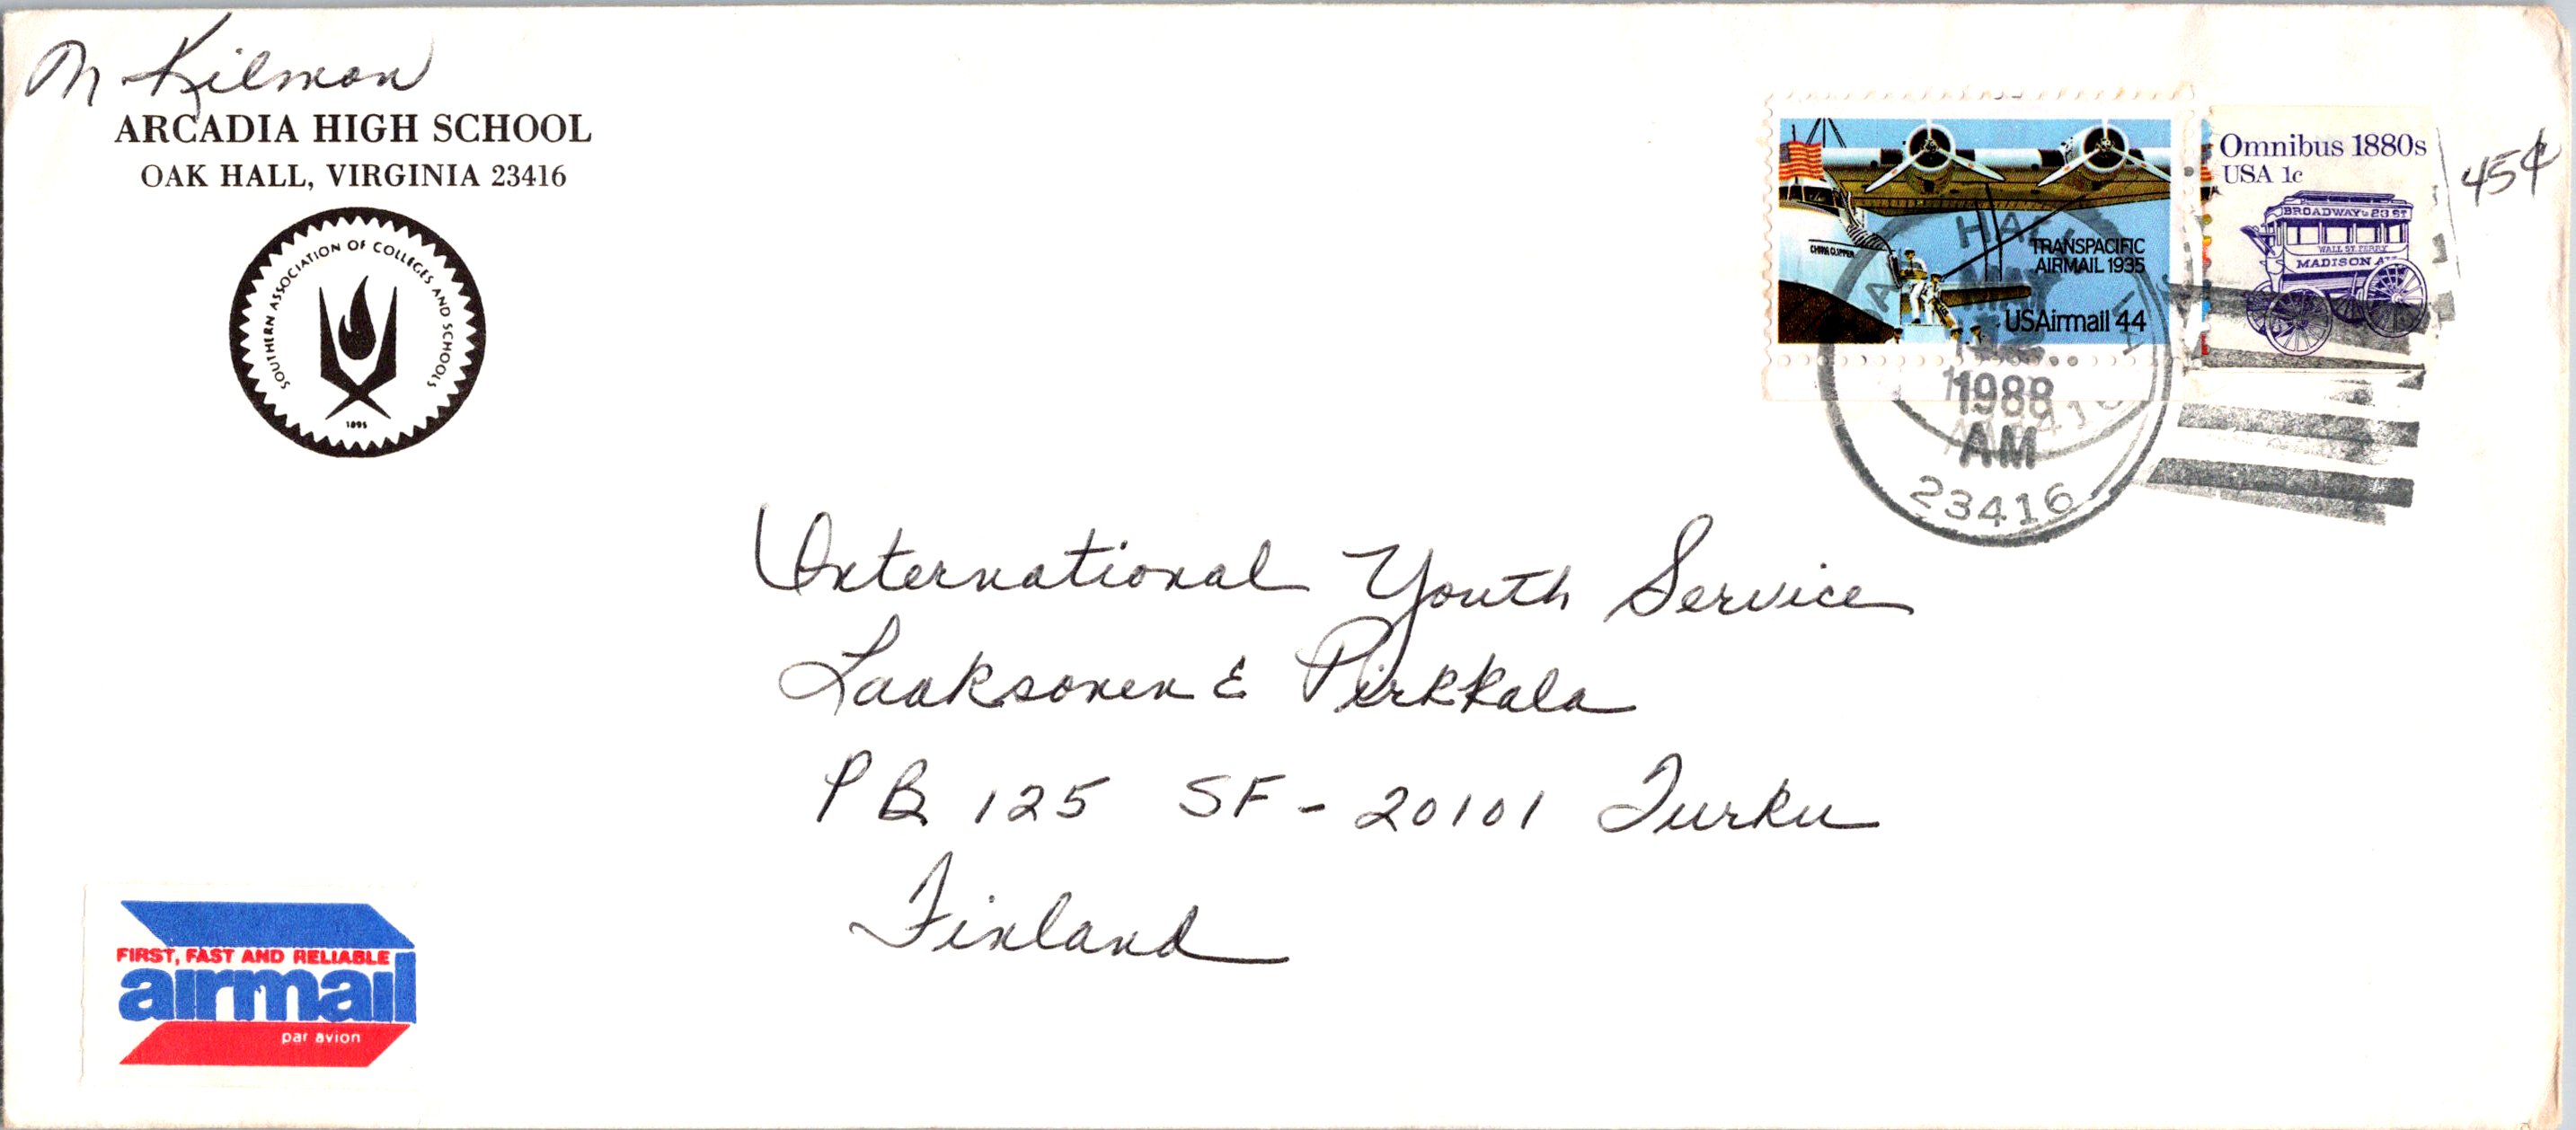 M Kilmon
ARCADIA HIGH SCHOOL
OAK HALL, VIRGINIA 23416
SOUTHERN ASSOCIATION OF COLLEGES AND SCHOOLS
1895
CHINA CLIPPER
TRANSPACIFIC
AIRMAIL 1935
USAirmail 44
Omnibus 1880s
USA 1c
BROADWAY & 23 ST
WALL ST. FERRY
MADISON AV
45¢
HALL
1988
AM
23416
International Youth Service
Laaksonen & Pirkkala
PB 125 SF - 20101 Turku
Finland
FIRST, FAST AND RELIABLE
airmail
par avion